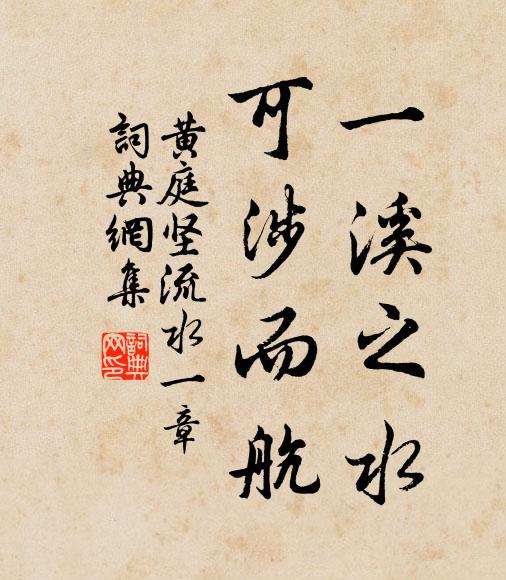 一溪之水
可涉而航
黄庭坚流水一章
詞典網集
詞典
网印